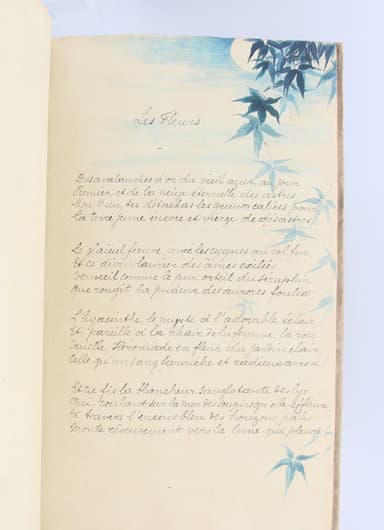 Les Fleurs
Des avalanches d'or du vieil azur, au jour
Premier, et de la neige éternelle des astres
Mon Dieu, tu détachas les grands calices pour
La terre jeune encore et vierge de désastres,
Le glaïeul fauve, avec les cygnes au col fin,
Et ce divin laurier des âmes exilées
Vermeil comme le pur orteil du séraphin
Que rougit la pudeur des aurores foulées,
L'hyacinthe, le myrte à l'adorable éclair
Et, pareille à la chair de la femme, la rose
Cruelle, Hérodiade en fleur du jardin clair
Celle qu'un sang farouche et radieux arrose!
Et tu fis la blancheur sanglotante des lys
Qui, roulant sur la mer de soupirs qu'elle effleure
à travers l'encens bleu des horizons pâlis
Monte rêveusement vers la lune qui pleure